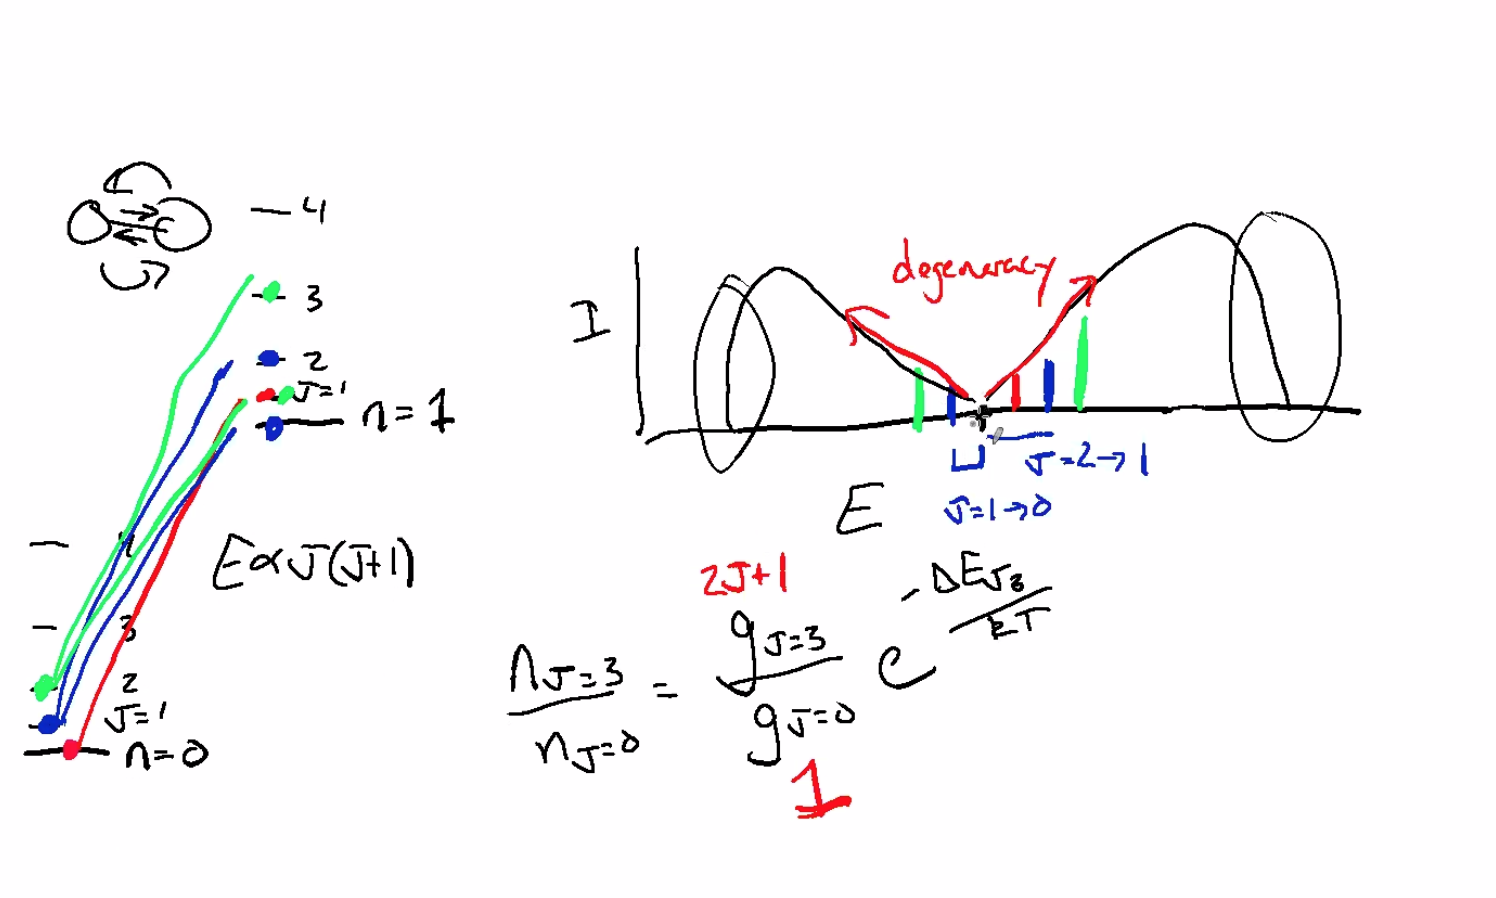 4
3
2
J=1
n=1
4
3
2
J=1
n=0
E∝J(J+1)
I
degeneracy
J=2→1
J=1→0
E
2J+1
n_{J=3}/n_{J=0} = g_{J=3}/g_{J=0} e^{-ΔE_{J3}/kT}
1